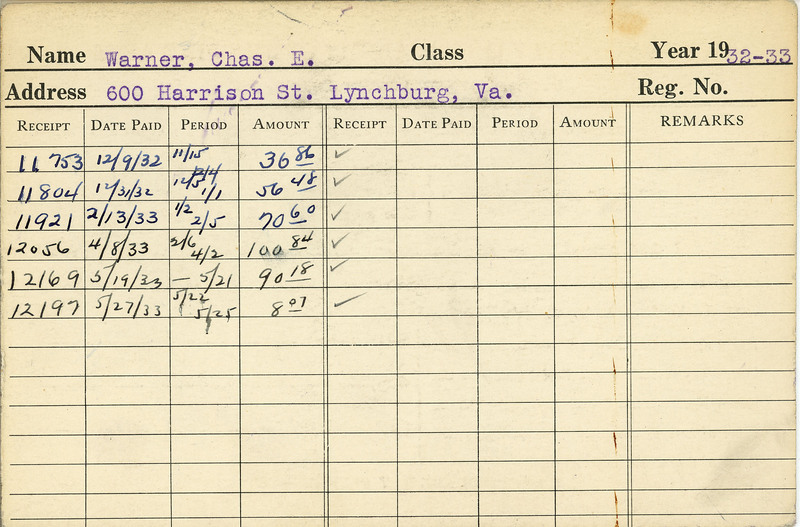 Name Warner, Chas. E. Class Year 1932-33
Address 600 Harrison St. Lynchburg, Va. Reg. No.
RECEIPT DATE PAID PERIOD AMOUNT RECEIPT DATE PAID PERIOD AMOUNT REMARKS
11753 12/9/32 11/15 12/4 36 86 ✓
11804 12/31/32 12/5 1/1 56 48 ✓
11921 2/13/33 1/2 2/5 70 60 ✓
12056 4/8/33 2/6 4/2 100 84 ✓
12169 5/19/33 — 5/21 90 18 ✓
12197 5/27/33 5/22 5/25 8 07 ✓